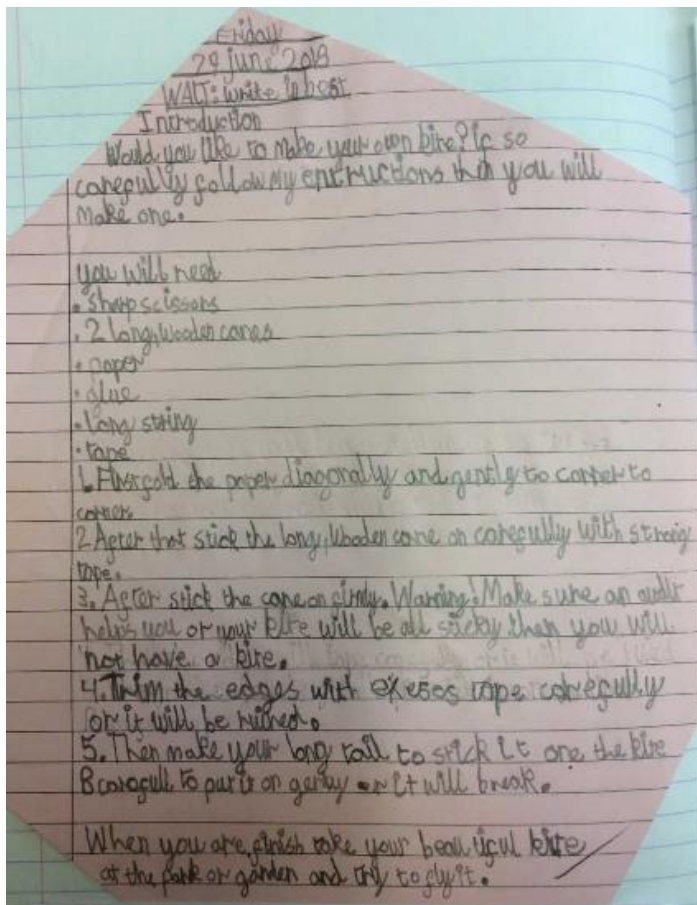 Friday
29 june 2018
WALT: write to best
Introduction
Would you like to make your own kite? If so
carefully follow my entructions then you will
make one.
you will need
• sharp scissors
• 2 long, wooden canes
• paper
• glue
• long string
• tape
1. First fold the paper diagonally and gently to corner to
corners
2 After that stick the long, wooden cane on carefully with strong
tape.
3. After stick the cane on firmly. Warning! Make sure an adult
helps you or your kite will be all sticky then you will
not have a kite.
4. Trim the edges with exeses tape carefully
or it will be ruined.
5. Then make your long tail to stick it one the kite
B carefull to put it on gentey or it will break.
When you are finish take your beautiful kite
at the park or garden and try to fly it.